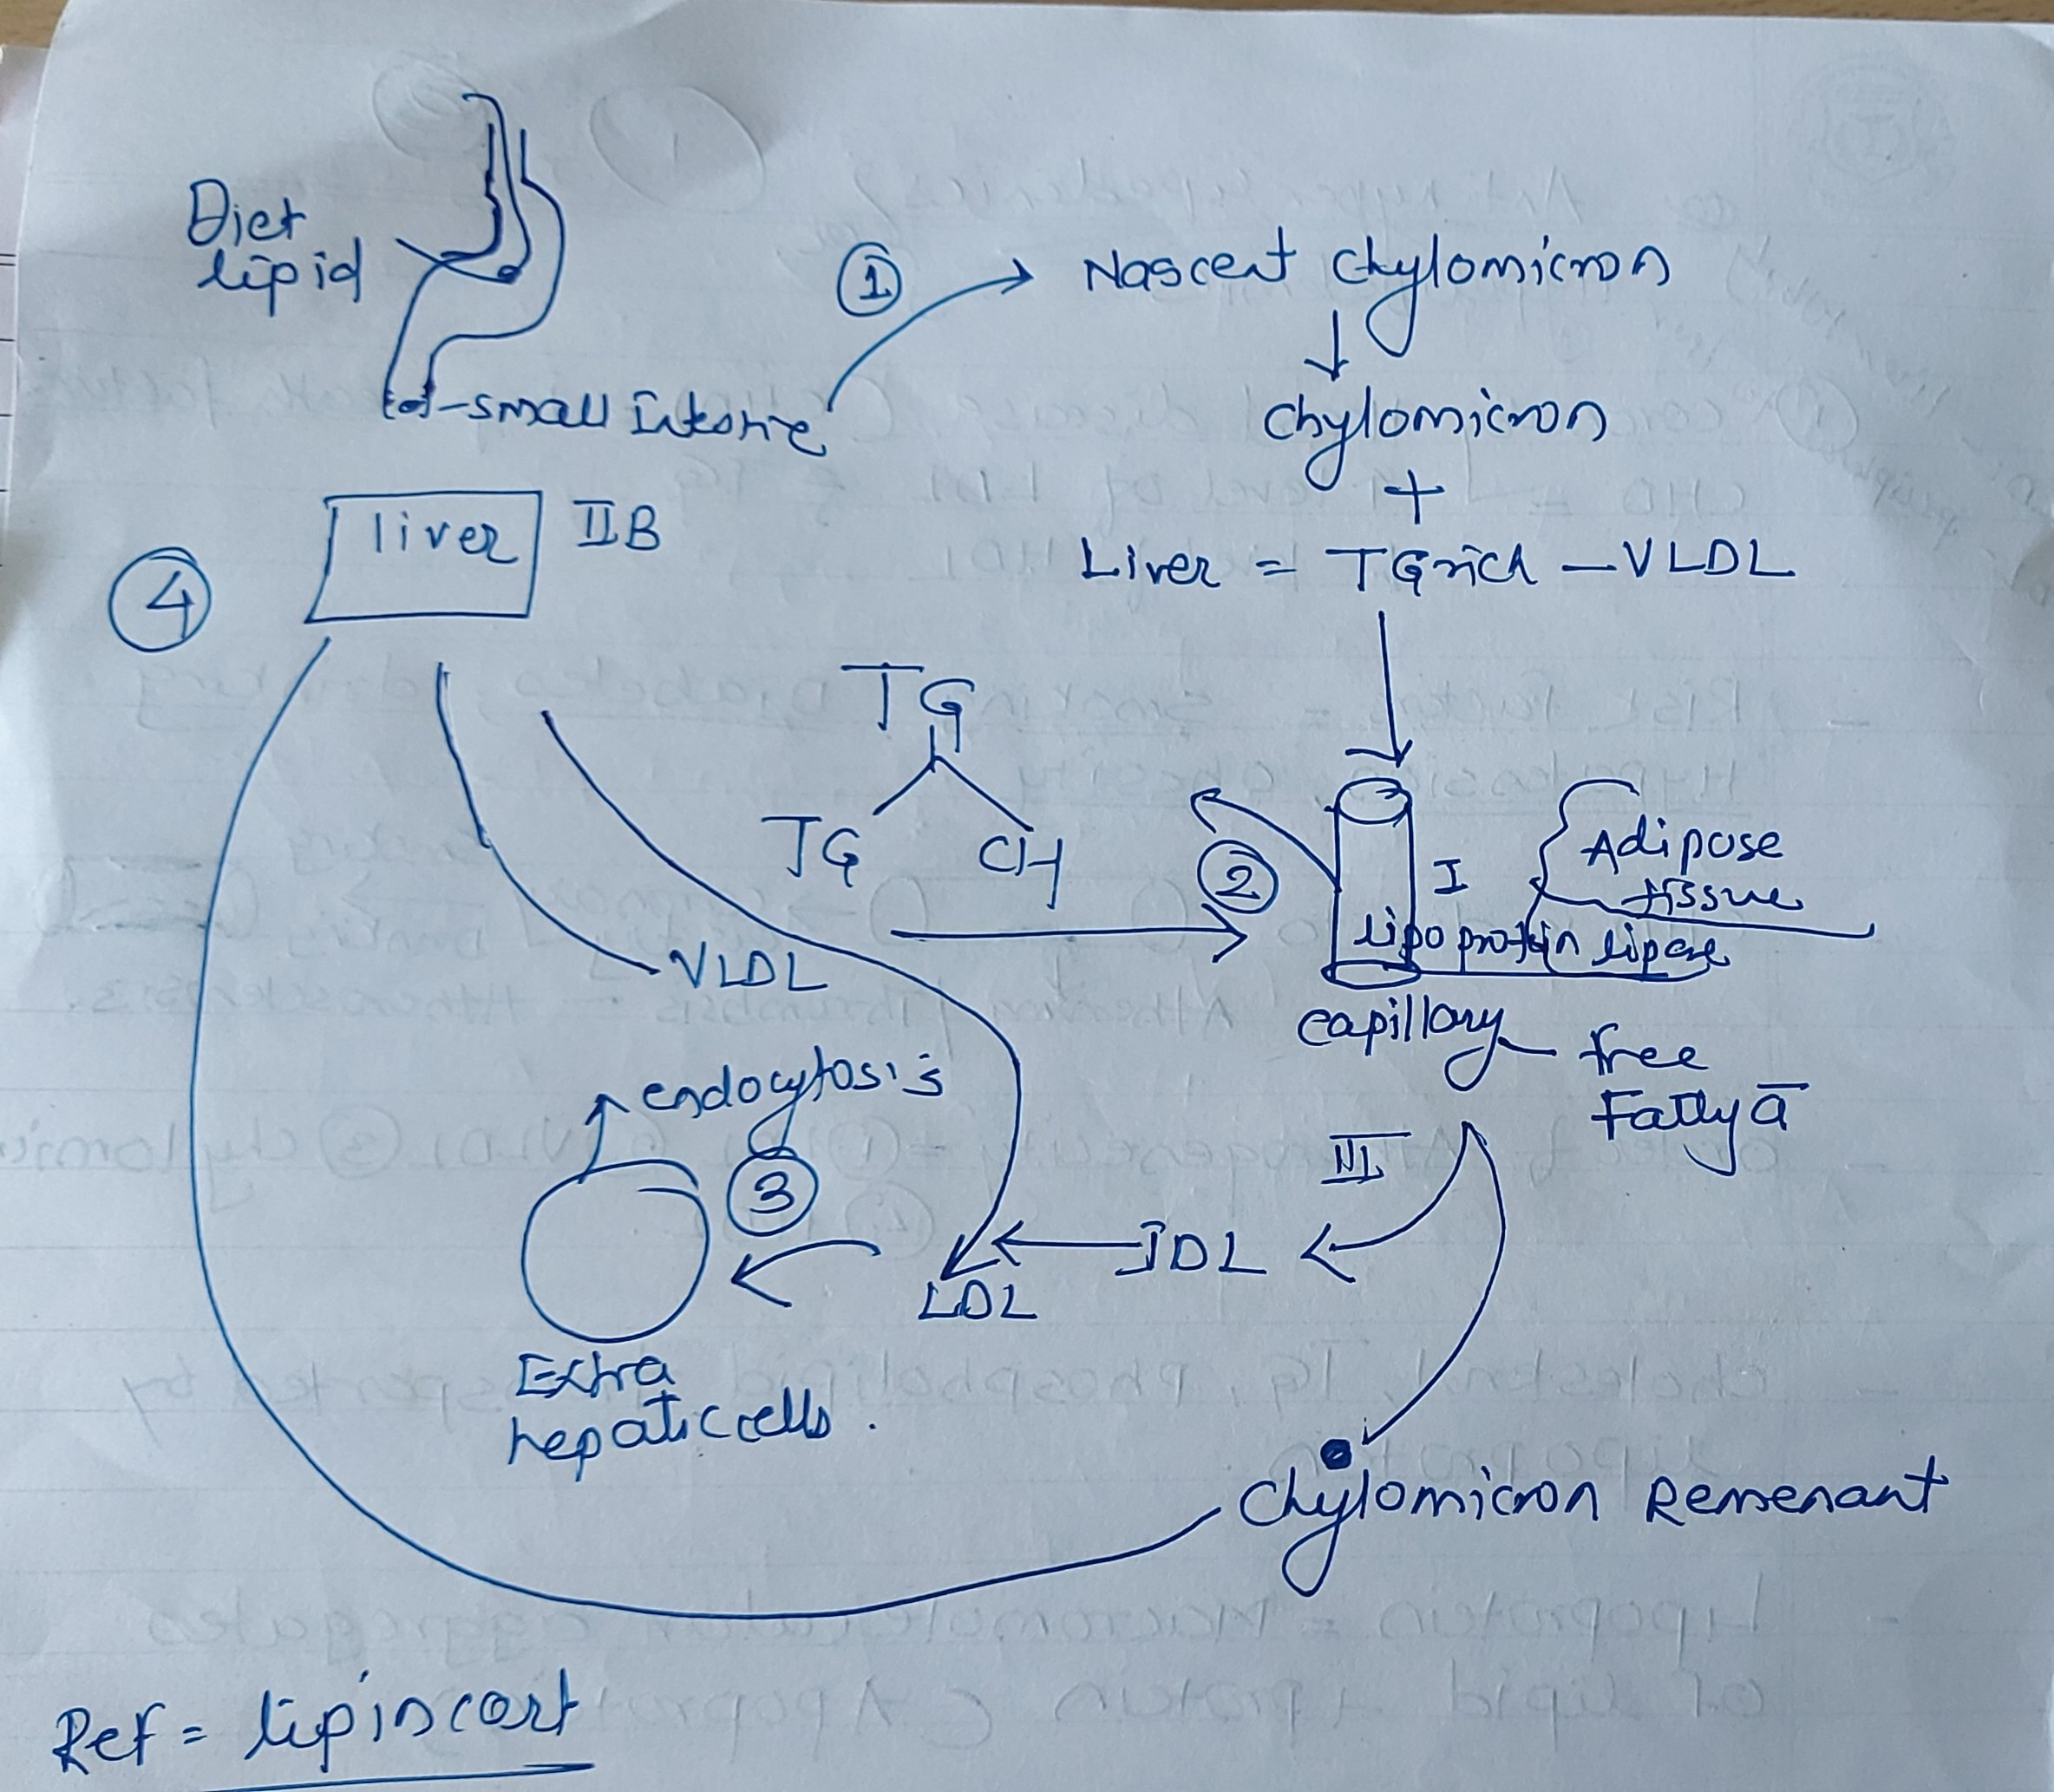 Diet
lipid
small Intestine
①
Nascent chylomicron
chylomicron
+
Liver = TG rich - VLDL
④
liver
IIB
TG
TG
CH
②
I
Adipose
tissue
Lipoprotein lipase
capillary
free
Fatty a
VLDL
endocytosis
③
III
IDL
LDL
Extra
hepatic cells.
Chylomicron Remenant
Ref = lipincort